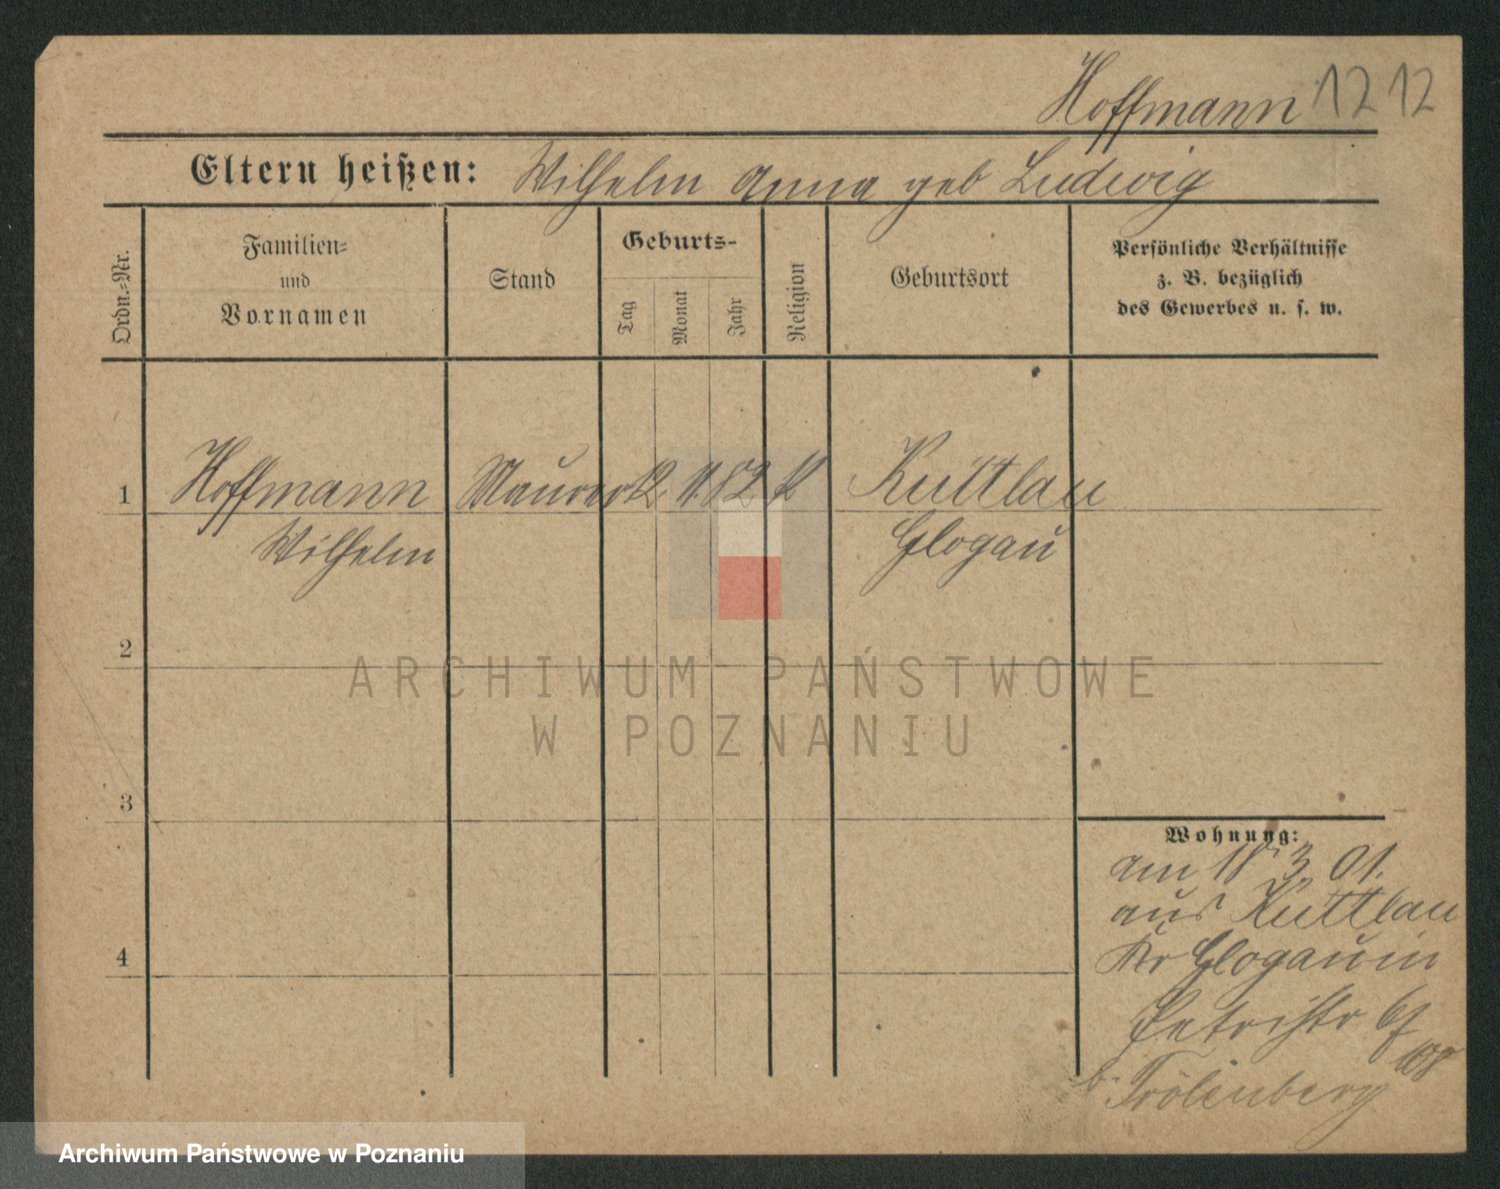 Hoffmann 12 12
Eltern heißen: Wilhelm Anna geb Ludwig
Ordn.-Nr.
Familien- und Vornamen
Stand
Geburts-
Tag
Monat
Jahr
Religion
Geburtsort
Persönliche Verhältnisse
z. B. bezüglich
des Gewerbes u. s. w.
1 Hoffmann Maurer 12 11 82 Kuttlau
Wilhelm Glogau
2
ARCHIWUM PAŃSTWOWE
W POZNANIU
3
Wohnung:
am 18 3. 01.
aus Kuttlau
4
Kr Glogau in
Petristr 6
b.
Archiwum Państwowe w Poznaniu